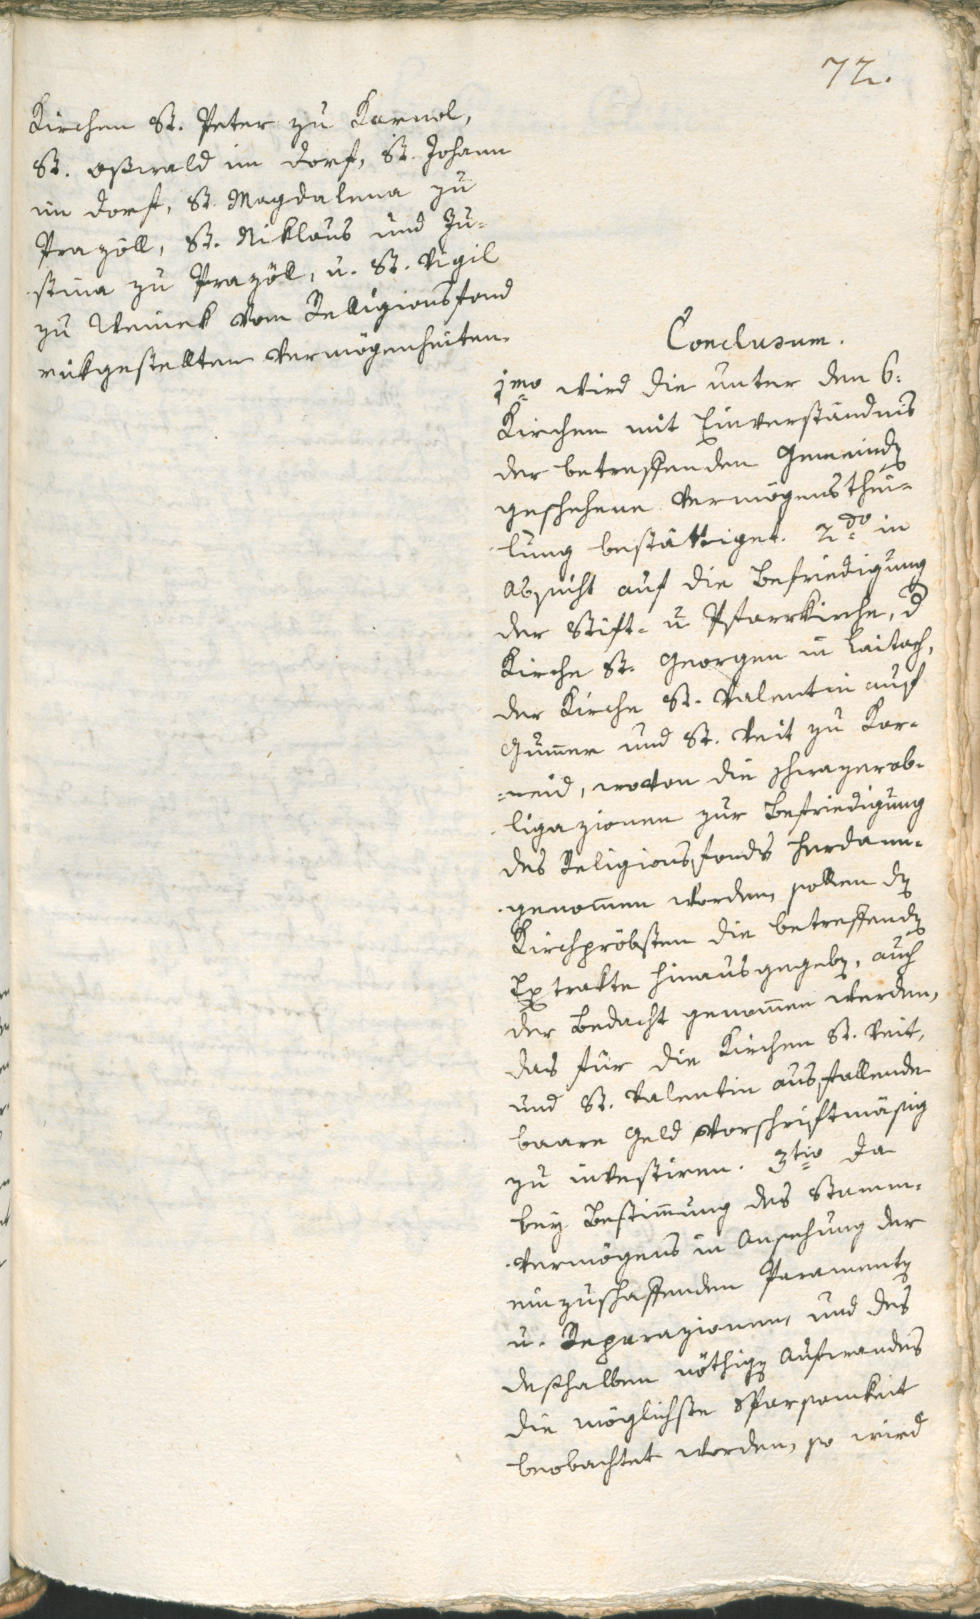 72.
Kirchen St. Peter zu Karnol,
St. Oßwald im Dorf, St. Johann
im Dorf, St. Magdalena zu
Prazöll, St. Niklaus und Ju-
stina zu Prazöll, u. St. Vigil
zu Weinek vom Religionsfond
rükgestellten Vermögenheiten.
Conclusum.
1mo wird die unter den 6.
Kirchen mit Einverständnis
der betreffenden Gemeinden
geschehene Vermögensthei-
lung bestättiget. 2do in
Absicht auf die Befriedigung
der Stift- u Pfarrkirche, d
Kirche St. Georgen in Laitach,
der Kirche St. Valentin auf
Gum̄er und St. Veit zu Kar-
=neid, wovon die schwazerob-
ligazionen zur Befriedigung
des Religionsfonds herdann-
genom̄en worden, sollen den
Kirchpröbsten die betreffenden
Extrakte hinausgegeben, auch
der Bedacht genom̄en werden,
das für die Kirchen St. Veit,
und St. Valentin ausfallende
baare Geld vorschriftmäsig
zu investiren. 3tio da
bey Bestim̄ung des Stamm-
vermögens in Ansehung der
einzuschaffenden Paramenten
u. Reparazionen, und des
deshalben nöthigen Aufwandes
die möglichste Sparsamkeit
beobachtet worden, so wird